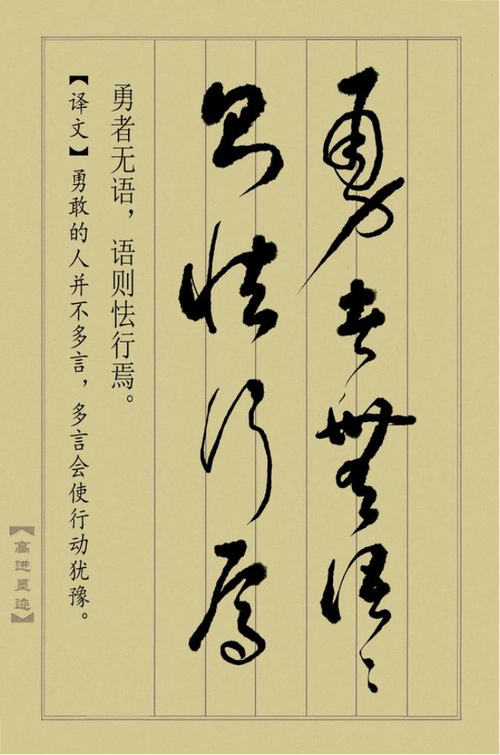 勇者無語〻
则怯行焉
勇者无语，语则怯行焉。
【译文】勇敢的人并不多言，多言会使行动犹豫。
【高进墨迹】